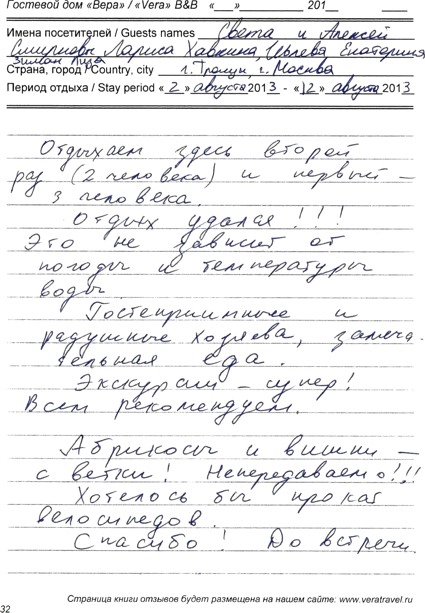 Гостевой дом «Вера» / «Vera» B&B «___»__________ 201__
Имена посетителей / Guests names Света и Алексей
Смирновы, Лариса Хавкина, Ивлева Екатерина
Зиман Лиза
Страна, город / Country, city г. Троицк, г. Москва
Период отдыха / Stay period «2» августа 2013 - «12» августа 2013
Отдыхаем здесь второй
раз (2 человека) и первый –
3 человека.
Отдых удался!!!
Это не зависит от
погоды и температуры
воды
Гостеприимные и
радушные хозяева, замеча-
тельная еда.
Экскурсии – супер!
Всем рекомендуем.
Абрикосы и вишни –
с ветки! Непередаваемо!!!
Хотелось бы прокат
велосипедов.
Спасибо! До встречи.
Страница книги отзывов будет размещена на нашем сайте: www.veratravel.ru
32